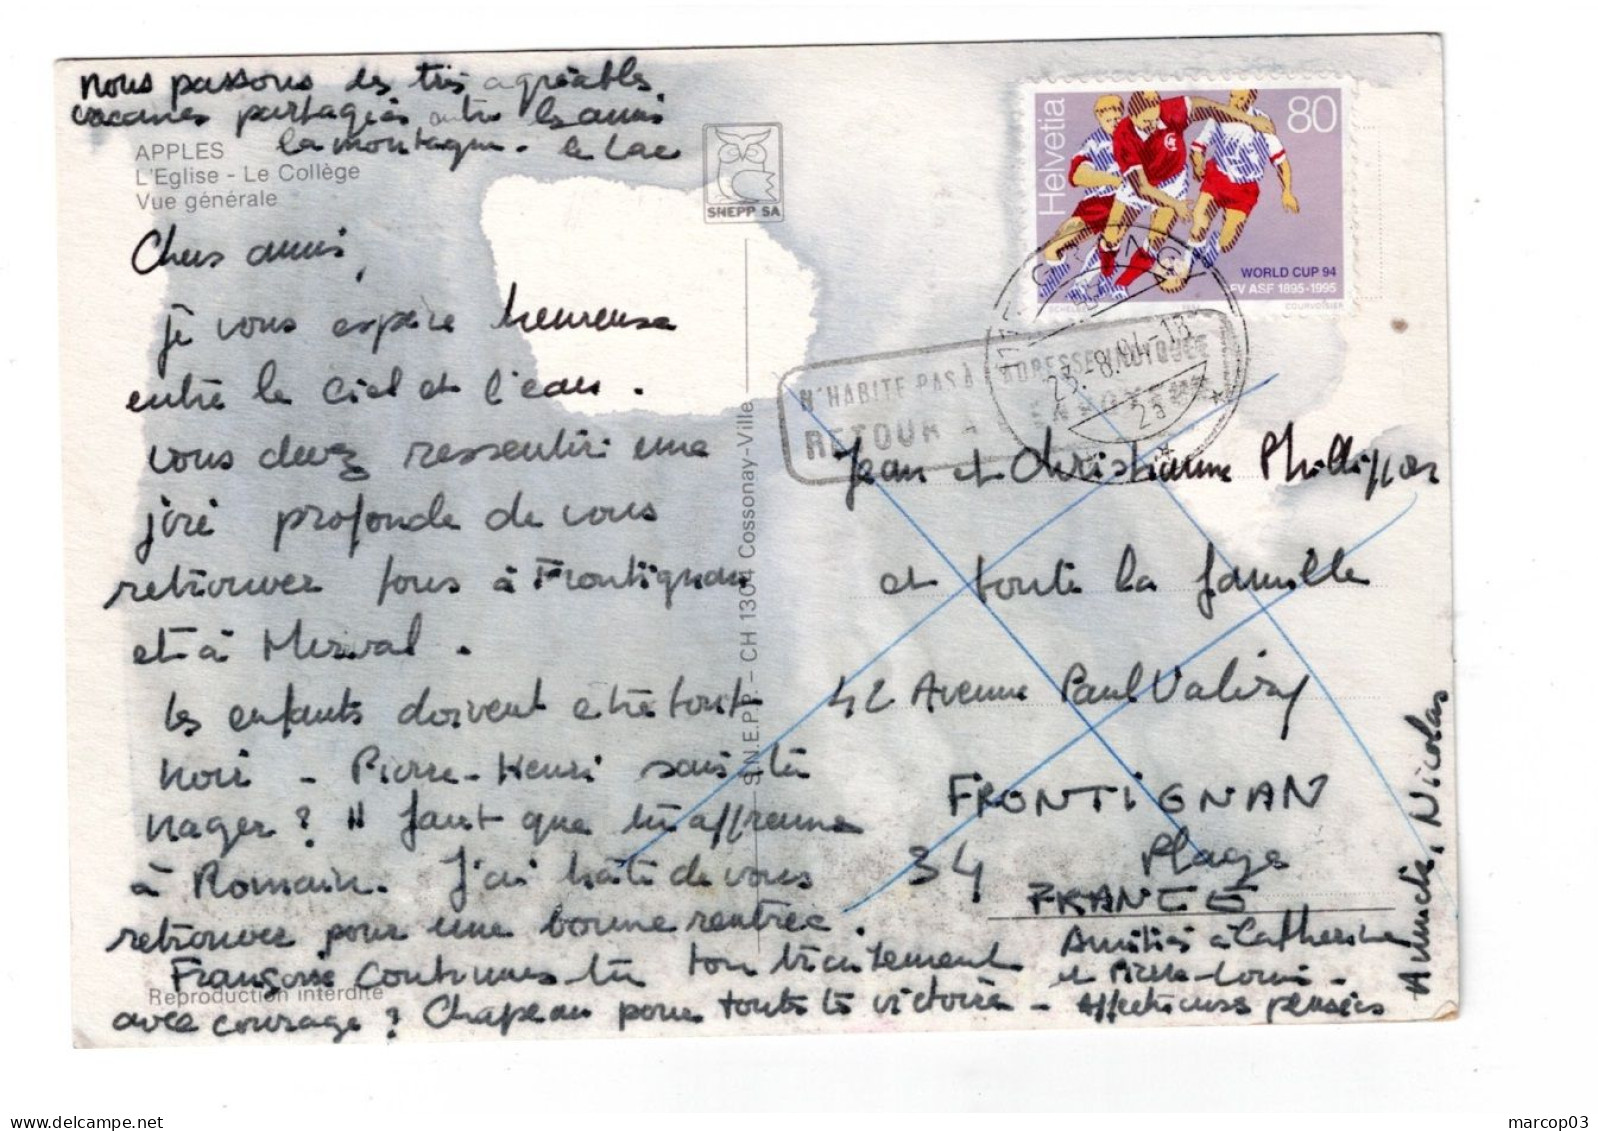 nous passons des très agréables
vacances partagées entre les amis
la montagne. le Lac
APPLES
L'Eglise - Le Collège
Vue générale
SNEPP SA
Chers amis,
je vous espère heureuse
entre le ciel et l'eau.
vous devez ressentir une
joie profonde de vous
retrouver tous à Frontignan
et à Merval.
les enfants doivent être tout
noir - Pierre-Henri sais tu
nager ? Il faut que tu apprenne
à Romain. J'ai hâte de vous
retrouver pour une bonne rentrée.
Françoise continues tu ton traitement
Reproduction interdite
avec courage ? Chapeau pour toute ta victoire -
S.N.E.P.P. - CH 1304 Cossonay-Ville
Helvetia
80
WORLD CUP 94
SFV ASF 1895-1995
COURVOISIER
23.-8.94-18
2a
N'HABITE PAS A L'ADRESSE INDIQUEE
RETOUR A L'ENVOYEUR
Jean et Christianne Phillippon
et toute la famille
42 Avenue Paul Valéry
FRONTIGNAN
34 Plage
FRANCE
Amitiés à Catherine
et Pierre-Louis -
Affectueuses pensées
Annick, Nicolas
marcop03